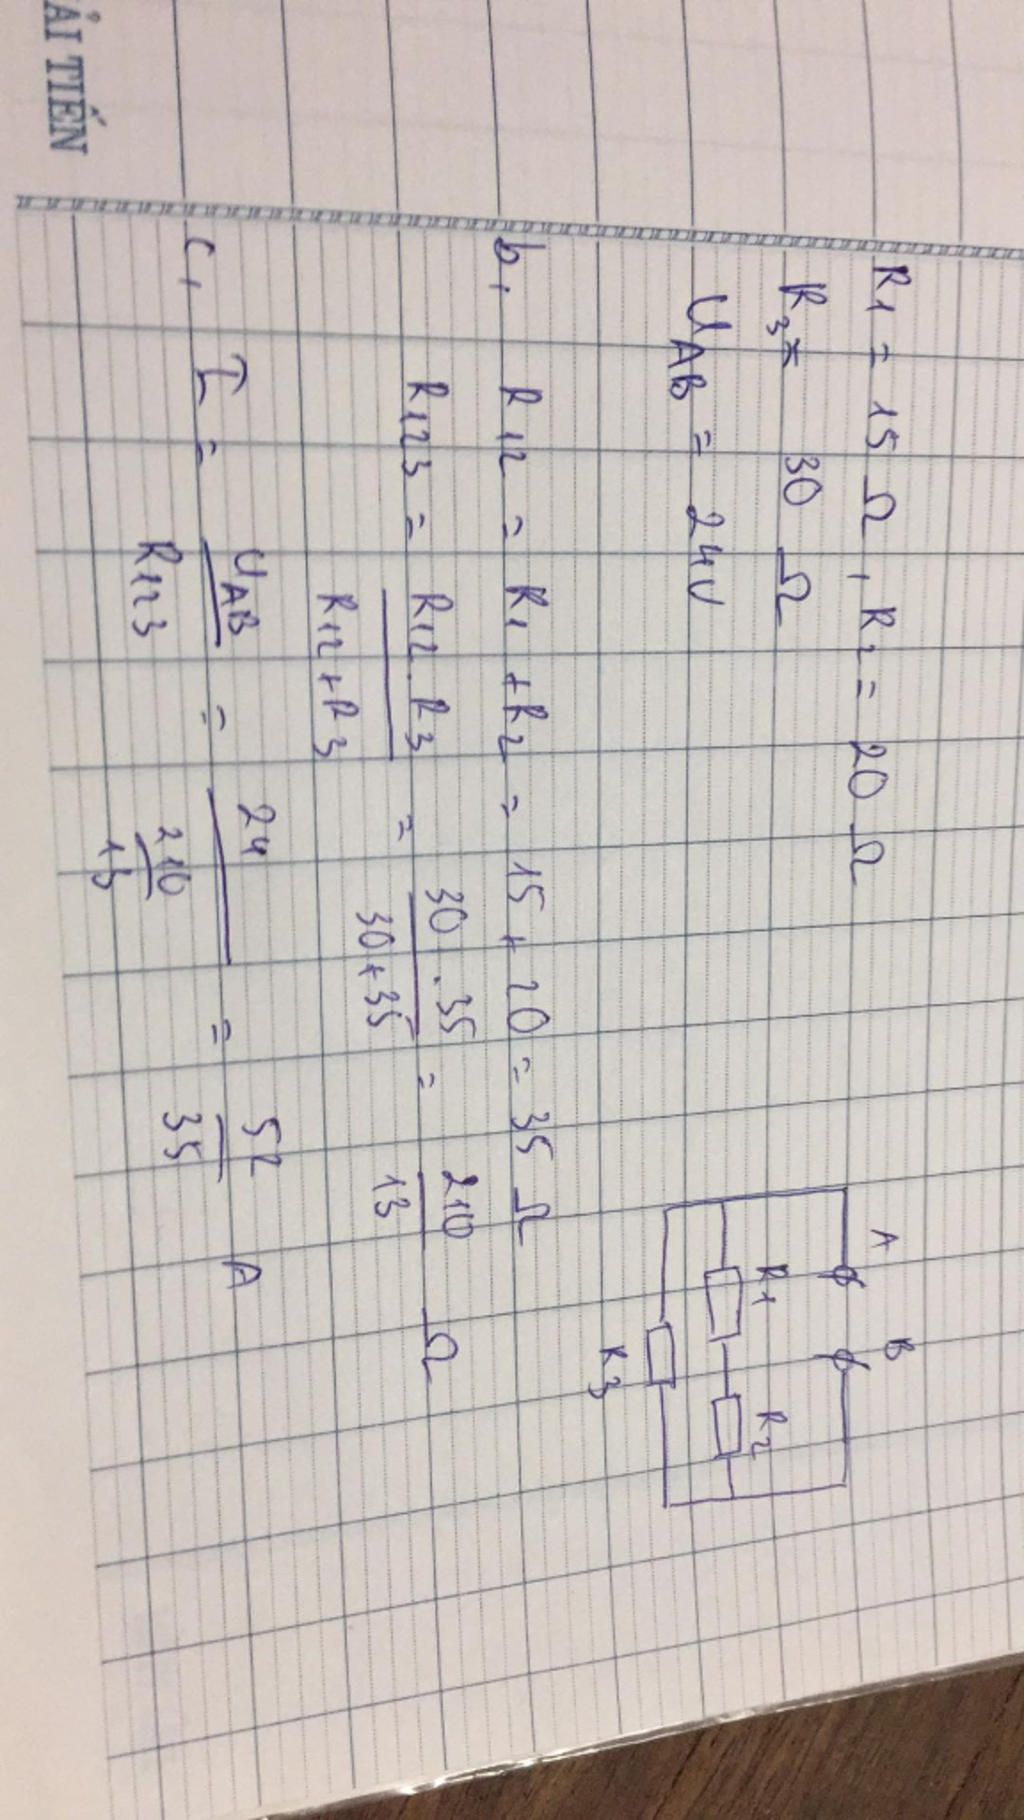 ẢI TIẾN
R1 = 15 Ω, R2 = 20 Ω
R3 = 30 Ω
UAB = 24V
A B
R1 R2
R3
b, R12 = R1 + R2 = 15 + 20 = 35 Ω
R123 = R12 . R3 / R12 + R3 = 30 . 35 / 30 + 35 = 210 / 13 Ω
c, I = UAB / R123 = 24 / 210 / 13 = 52 / 35 A